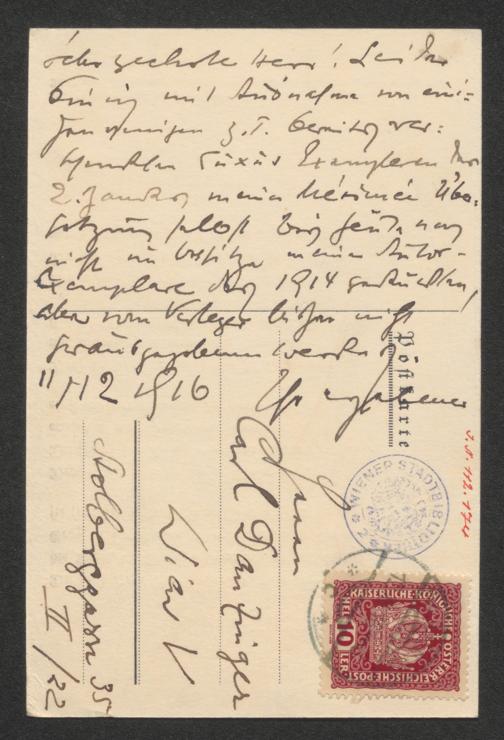 Sehr geehrter Herr! Leider
bin ich mit Ausnahme von eini-
gen wenigen z.T. bereits ver-
Luxus Exemplaren des
2. Bandes meiner Mérimée Über-
setzung selbst bis heute noch
nicht im Besitze meiner Autor-
Exemplare der 1914 gedruckten,
aber vom Verleger bisher nicht
herausgegebenen werden
11/12 1916 Ihr ergebener
Herrn
Carl Danzinger
Wien V
Stolberggasse 35
II/22
Postkarte
I.N. 112.174
WIENER STADTBIBLIOTHEK
KAISERLICHE KÖNIGLICHE ÖSTERREICHISCHE POST
10 HELLER